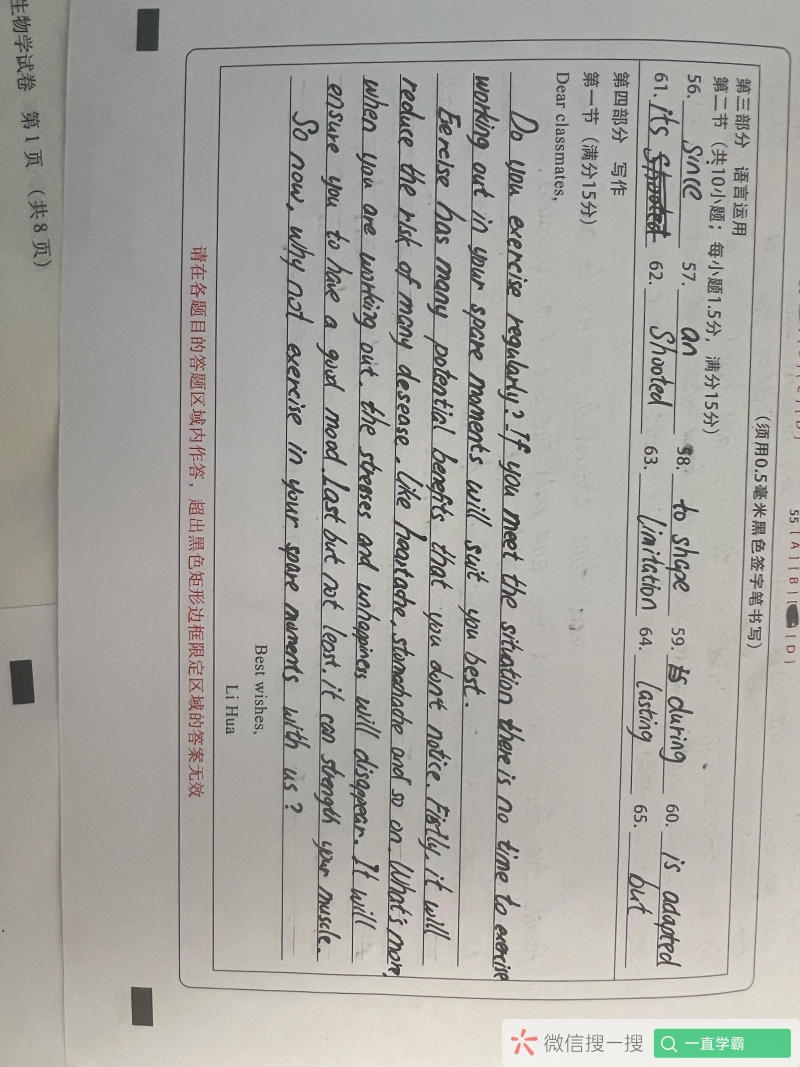 55 [A] [B] [D]
(须用0.5毫米黑色签字笔书写)
第三部分 语言运用
第二节 (共10小题; 每小题1.5分, 满分15分)
56. since 57. an 58. to shape 59. during 60. is adapted
61. its 62. Shooted 63. limitation 64. lasting 65. but
第四部分 写作
第一节 (满分15分)
Dear classmates,
Do you exercise regularly? If you meet the situation there is no time to exercise
working out in your spare moments will suit you best.
Eercise has many potential benefits that you don't notice. Fistly, it will
reduce the risk of many desease, like heartache, stomachache and so on. What's more,
when you are working out, the stresses and unhappiness will disappear. It will
ensure you to have a good mood. Last but not least, it can strength your muscle.
So now, why not exercise in your spare moments with us?
Best wishes,
Li Hua
请在各题目的答题区域内作答, 超出黑色矩形边框限定区域的答案无效
生物学试卷 第1页 (共8页)
微信搜一搜 一直学霸